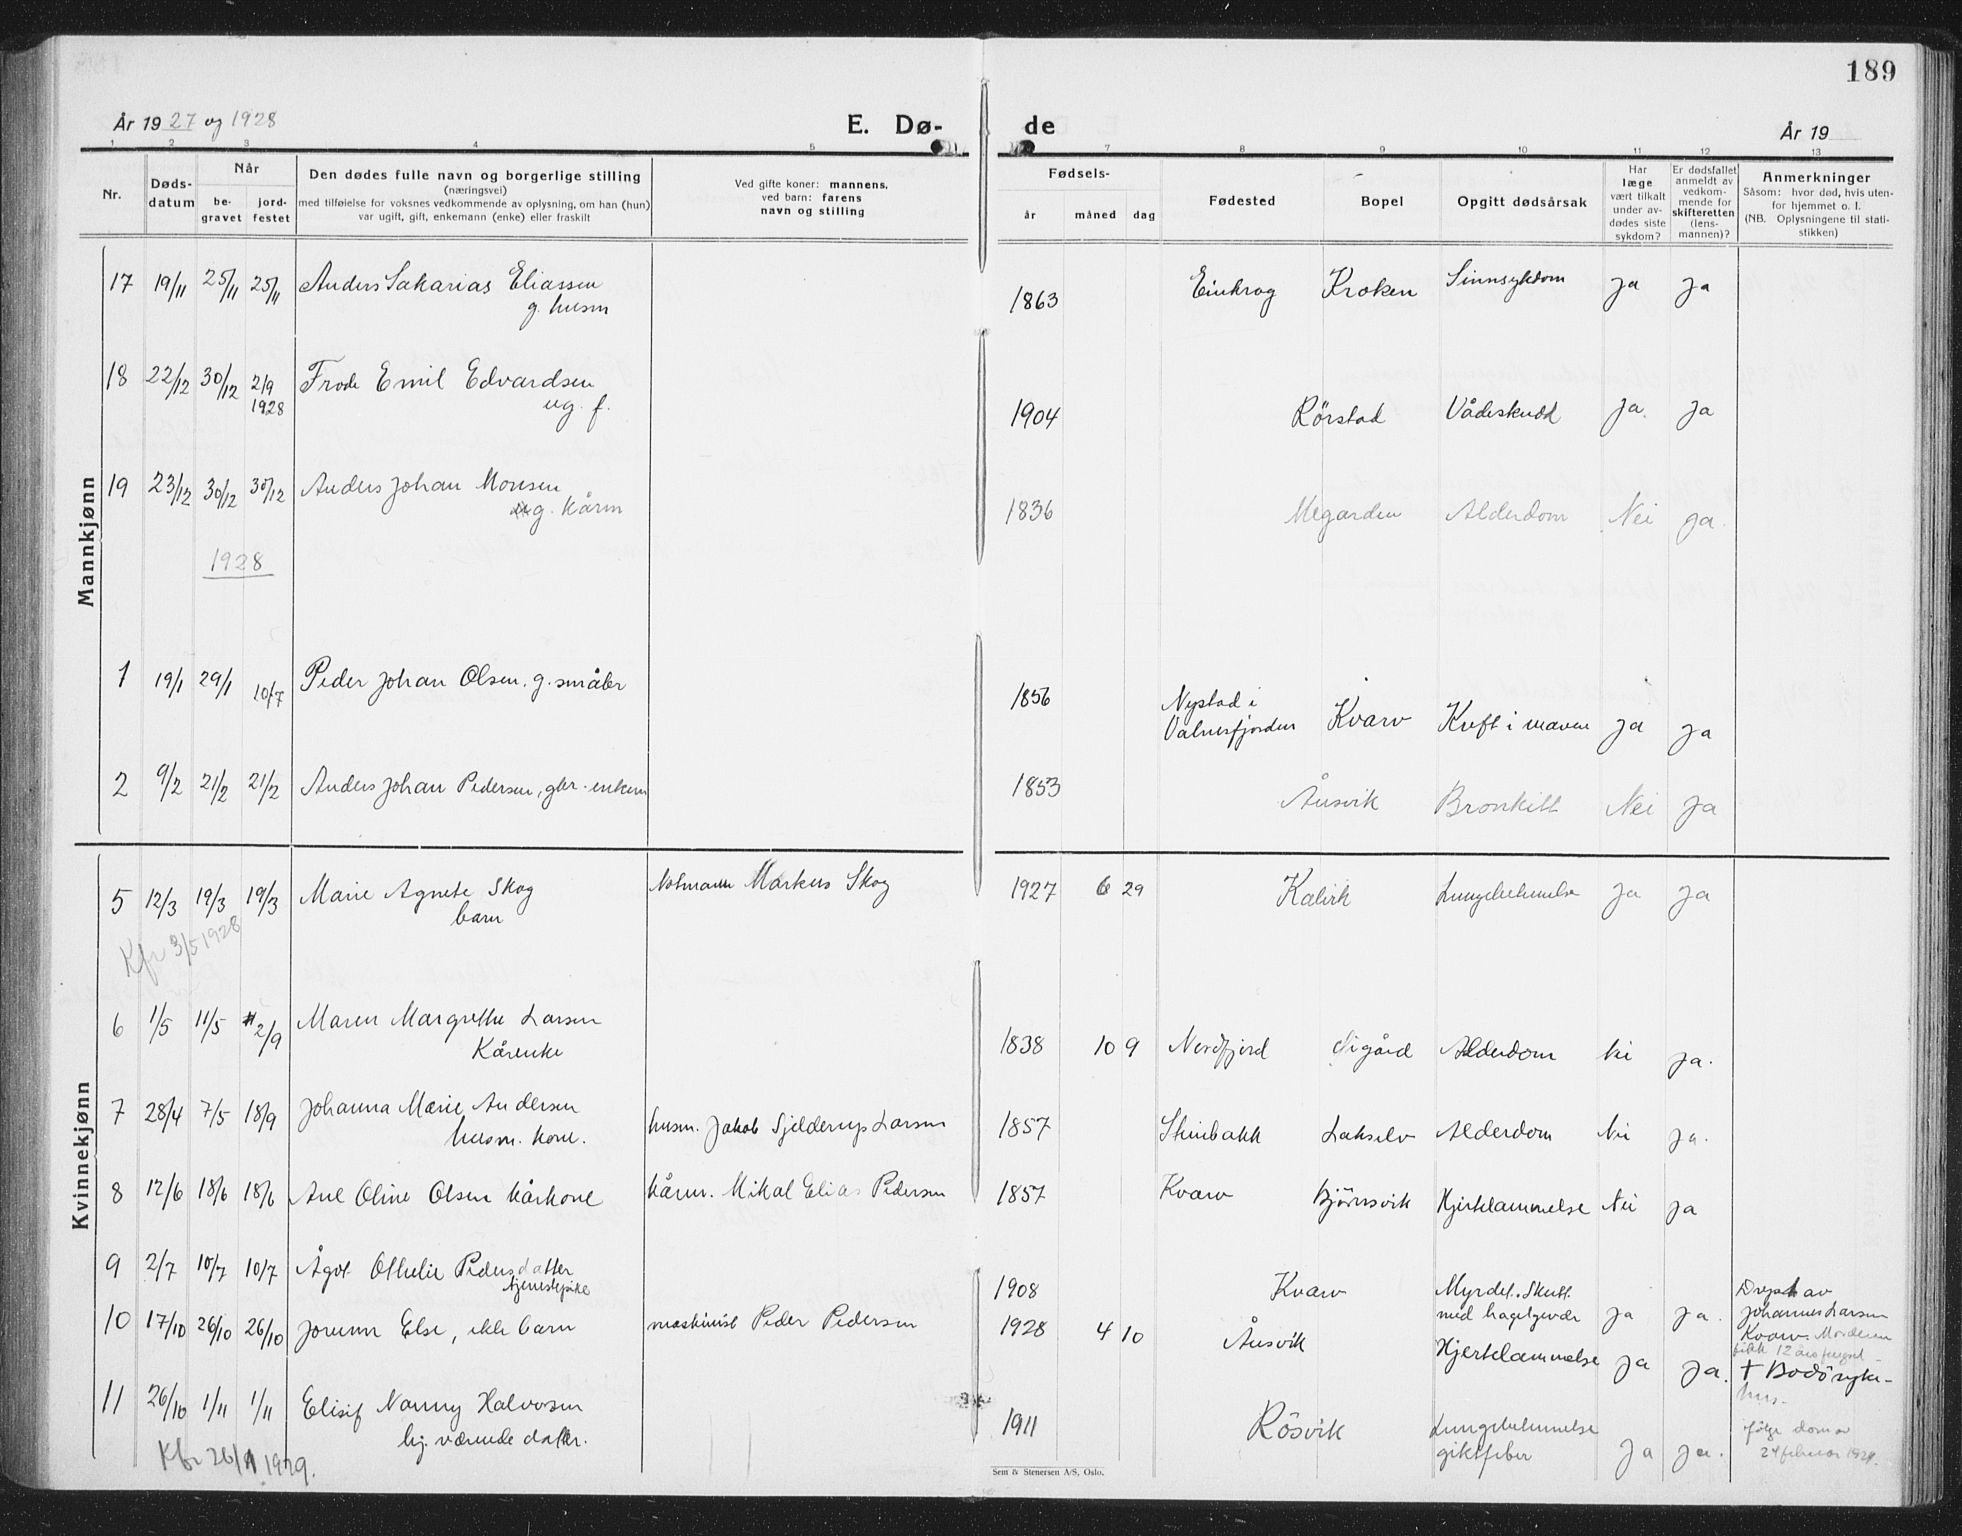 189
År 1927 og 1928
E. Dø- de
År 19
1 2 3 4 5 7 8 9 10 11 12 13
Nr.
Døds-
datum
Når
be-
gravet
jord-
festet
Den dødes fulle navn og borgerlige stilling
(næringsvei)
med tilføielse for voksnes vedkommende av oplysning, om han (hun)
var ugift, gift, enkemann (enke) eller fraskilt
Ved gifte koner: mannens,
ved barn: farens
navn og stilling
Fødsels-
år måned dag
Fødested
Bopel
Opgitt dødsårsak
Har
læge
vært tilkalt
under av-
dødes siste
sykdom?
Er dødsfallet
anmeldt av
vedkom-
mende for
skifteretten
(lens-
mannen)?
Anmerkninger
Såsom: hvor død, hvis uten-
for hjemmet o. l.
(NB. Oplysningene til stati-
stikken)
Mannkjønn
17 19/11 25/11 25/11 Anders Sakarias Eliassen
g. husm
1863 Einkrog Kroken Sinnsykdom Ja Ja
18 22/12 30/12 2/9 1928 Frode Emil Edvardsen
ug. f.
1904 Rörstad Vådeskudd Ja. Ja
19 23/12 30/12 30/12 Anders Johan Monsen
g. kårm
1836 Megarden Alderdom Nei Ja.
1928
1 19/1 29/1 10/7 Peder Johan Olsen. g. småbr
1856 Nystad i
Valnesfjorden Kvarv Kreft i maven Ja Ja
2 9/2 21/2 21/2 Anders Johan Pedersen, gbr. enkem
1853 Åusvik Bronkitt Nei Ja
Kvinnekjønn
5 12/3 19/3 19/3 Marie Agnete Skog
barn
Notmann Markus Skog
1927 6 29 Kalvik Lungebetennelse Ja Ja
Kfr 3/5 1928
6 1/5 11/5 2/9 Maren Margrethe Larsen
Kårenke
1838 10 9 Nordfjord Alderdom Nei Ja.
7 28/4 7/5 18/9 Johanna Marie Andersen
husm. kone.
husm. Jakob Gjelderup Larsen
1857 Steinbakk Lakselv Alderdom Nei Ja.
8 12/6 18/6 18/6 Ane Oline Olsen kårkone
kårm. Mikal Elias Pedersen
1857 Kvarv Bjørnsvik Hjertelammelse Nei Ja
9 2/7 10/7 10/7 Ågot Othelie Pedersdatter
tjenestepike
1908 Kvarv Myrdet. Skutt
med haglgevær Ja Ja.
Drept av
Johannes Larsen
Kvarv. Morderen
fikk 12 års fengsel
10 17/10 26/10 26/10 Jorunn Else, ekte barn
maskinist Peder Pedersen
1928 4 10 Åusvik Hjertelammelse Ja Ja.
+ Bodö syke-
hus.
11 26/10 1/11 1/11 Elisif Nanny Halvorsen
hj. værende datter.
1911 Rösvik Lungebetennelse
giktfeber Ja Ja.
ifølge dom av
24 februar 1929.
Kfr 26/1 1929.
Sem & Stenersen A/S, Oslo.